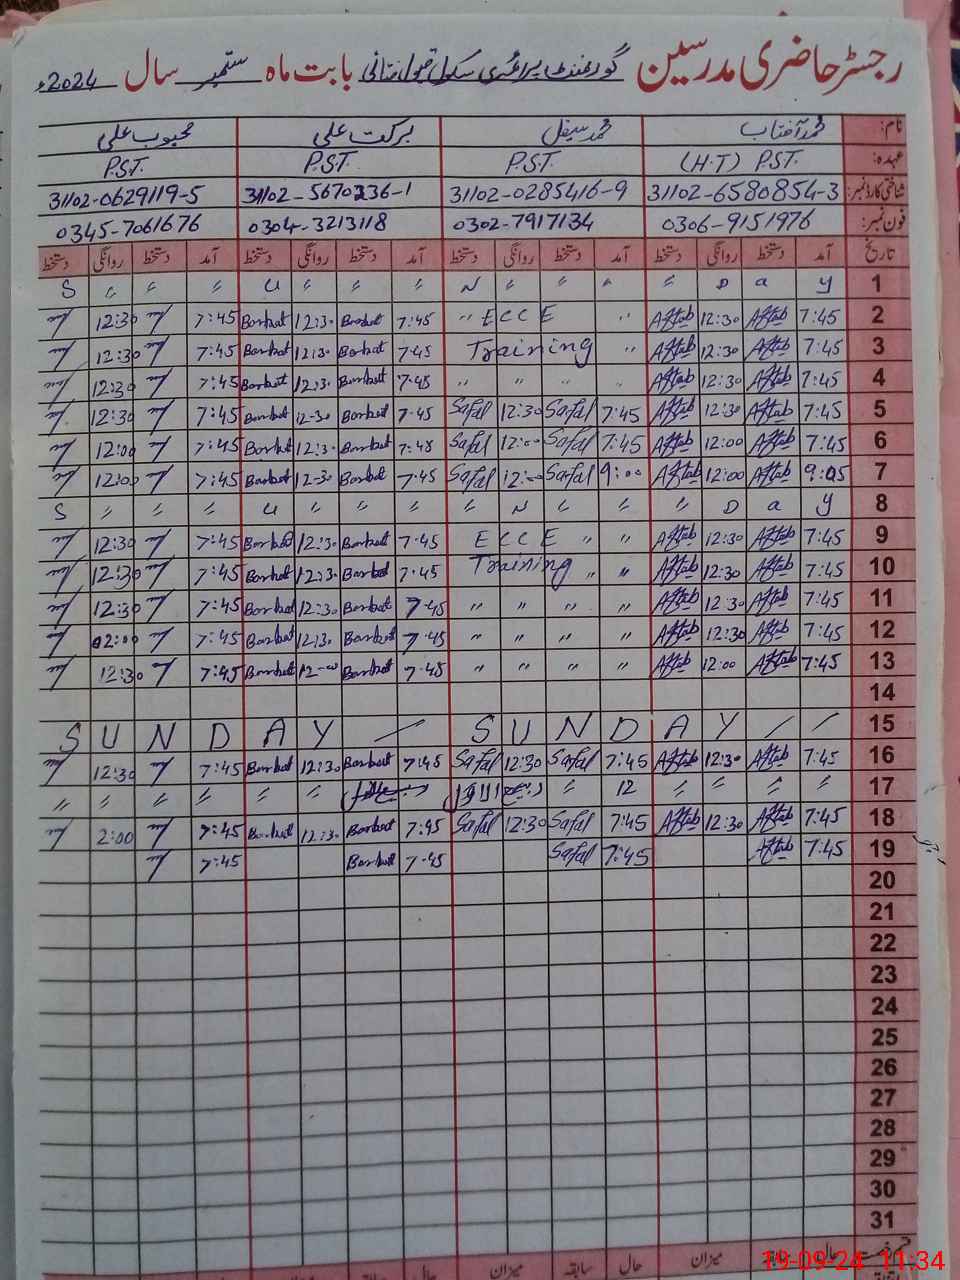 رجسٹر حاضری مدرسین گورنمنٹ پرائمری سکول قبول متانی بابت ماہ ستمبر سال 2024ء
نام: محمد آفتاب محمد سیفل برکت علی محبوب علی
عہدہ: (H.T) P.S.T. P.S.T. P.S.T. P.S.T.
شناختی کارڈ نمبر: 31102-6580854-3 31102-0285416-9 31102-5670336-1 31102-0629119-5
فون نمبر: 0306-9151976 0302-7917134 0304-3213118 0345-7061676
تاریخ آمد دستخط روانگی دستخط آمد دستخط روانگی دستخط آمد دستخط روانگی دستخط آمد دستخط روانگی دستخط
S 〃 〃 〃 u 〃 〃 〃 N 〃 〃 〃 〃 D a y 1
12:30 7:45 Barkat 12:30 Barkat 7:45 〃 ECCE 〃 Aftab 12:30 Aftab 7:45 2
12:30 7:45 Barkat 12:30 Barkat 7:45 Training 〃 Aftab 12:30 Aftab 7:45 3
12:30 7:45 Barkat 12:30 Barkat 7:45 〃 〃 〃 〃 Aftab 12:30 Aftab 7:45 4
12:30 7:45 Barkat 12:30 Barkat 7:45 Safal 12:30 Safal 7:45 Aftab 12:30 Aftab 7:45 5
12:00 7:45 Barkat 12:30 Barkat 7:45 Safal 12:00 Safal 7:45 Aftab 12:00 Aftab 7:45 6
12:00 7:45 Barkat 12:30 Barkat 7:45 Safal 12:00 Safal 9:00 Aftab 12:00 Aftab 9:05 7
S 〃 〃 〃 u 〃 〃 〃 〃 N 〃 〃 〃 D a y 8
12:30 7:45 Barkat 12:30 Barkat 7:45 ECCE 〃 〃 Aftab 12:30 Aftab 7:45 9
12:30 7:45 Barkat 12:30 Barkat 7:45 Training 〃 〃 Aftab 12:30 Aftab 7:45 10
12:30 7:45 Barkat 12:30 Barkat 7:45 〃 〃 〃 〃 Aftab 12:30 Aftab 7:45 11
02:00 7:45 Barkat 12:30 Barkat 7:45 〃 〃 〃 〃 Aftab 12:30 Aftab 7:45 12
12:30 7:45 Barkat 12:00 Barkat 7:45 〃 〃 〃 〃 Aftab 12:00 Aftab 7:45 13
14
S U N D A Y / S U N D A Y / / 15
12:30 7:45 Barkat 12:30 Barkat 7:45 Safal 12:30 Safal 7:45 Aftab 12:30 Aftab 7:45 16
〃 〃 〃 〃 〃 〃 ربیع الاول 〃 12 〃 〃 〃 〃 17
2:00 7:45 Barkat 12:30 Barkat 7:45 Safal 12:30 Safal 7:45 Aftab 12:30 Aftab 7:45 18
7:45 Barkat 7:45 Safal 7:45 Aftab 7:45 19
20
21
22
23
24
25
26
27
28
29
30
31
حال سابقہ میزان حال میزان
19-09-24 11:34